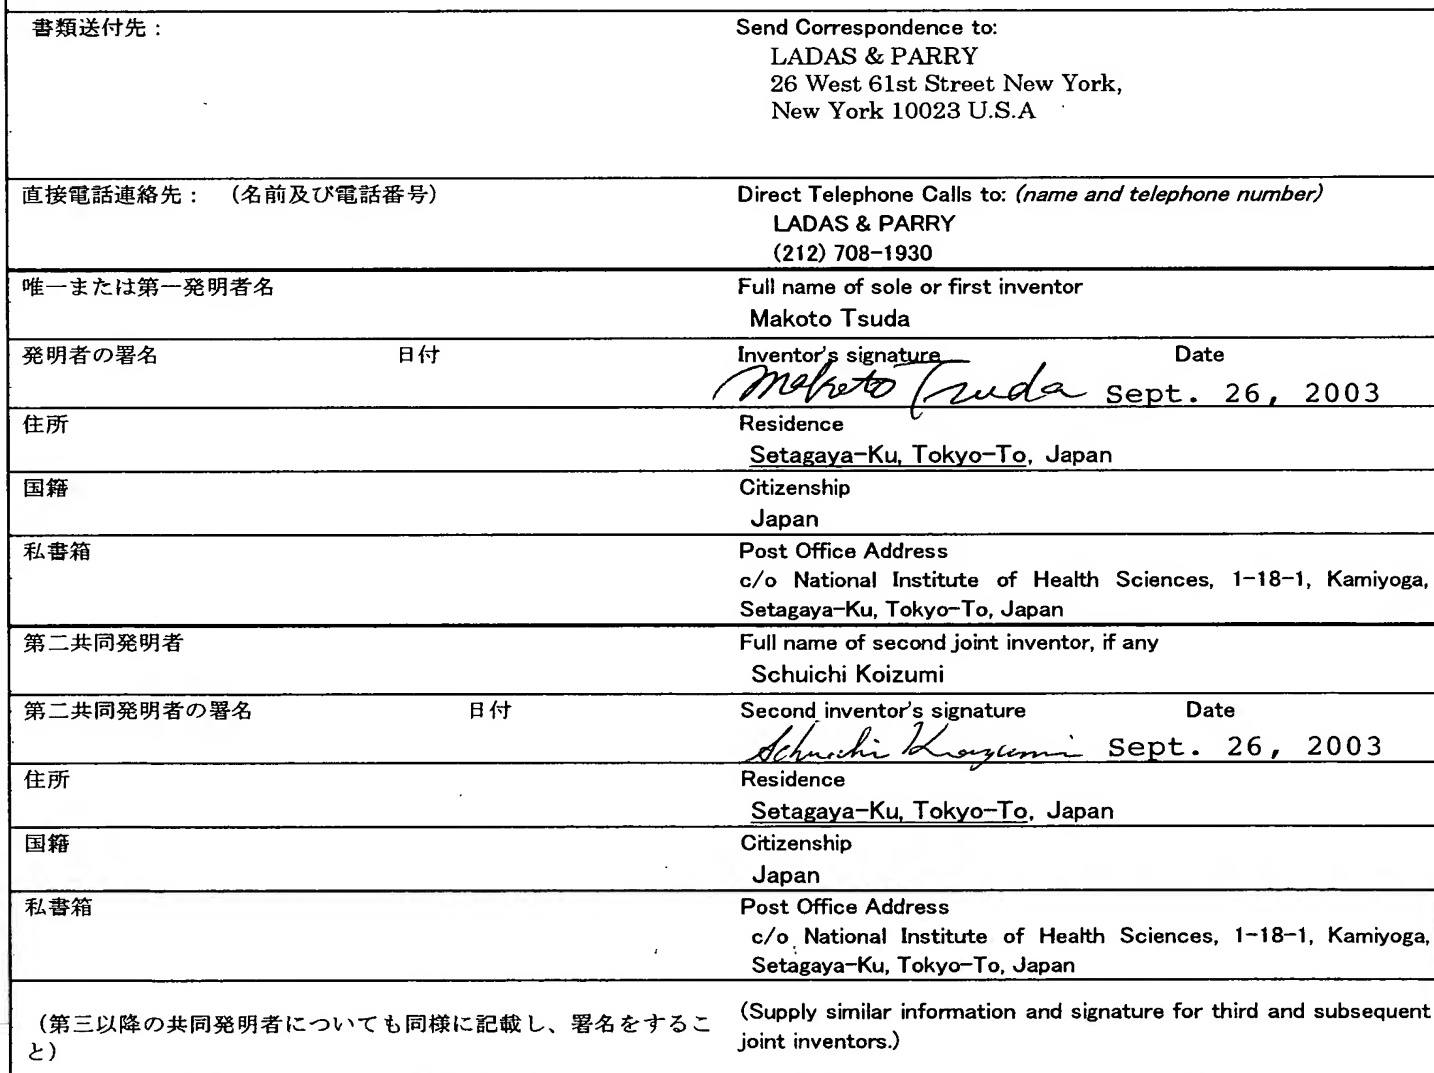 書類送付先：
Send Correspondence to:
LADAS & PARRY
26 West 61st Street New York,
New York 10023 U.S.A
直接電話連絡先： （名前及び電話番号）
Direct Telephone Calls to: (name and telephone number)
LADAS & PARRY
(212) 708-1930
唯一または第一発明者名
Full name of sole or first inventor
Makoto Tsuda
発明者の署名 日付
Inventor's signature Date
Makoto Tsuda Sept. 26, 2003
住所
Residence
Setagaya-Ku, Tokyo-To, Japan
国籍
Citizenship
Japan
私書箱
Post Office Address
c/o National Institute of Health Sciences, 1-18-1, Kamiyoga,
Setagaya-Ku, Tokyo-To, Japan
第二共同発明者
Full name of second joint inventor, if any
Schuichi Koizumi
第二共同発明者の署名 日付
Second inventor's signature Date
Schuichi Koizumi Sept. 26, 2003
住所
Residence
Setagaya-Ku, Tokyo-To, Japan
国籍
Citizenship
Japan
私書箱
Post Office Address
c/o National Institute of Health Sciences, 1-18-1, Kamiyoga,
Setagaya-Ku, Tokyo-To, Japan
（第三以降の共同発明者についても同様に記載し、署名をするこ
と）
(Supply similar information and signature for third and subsequent
joint inventors.)